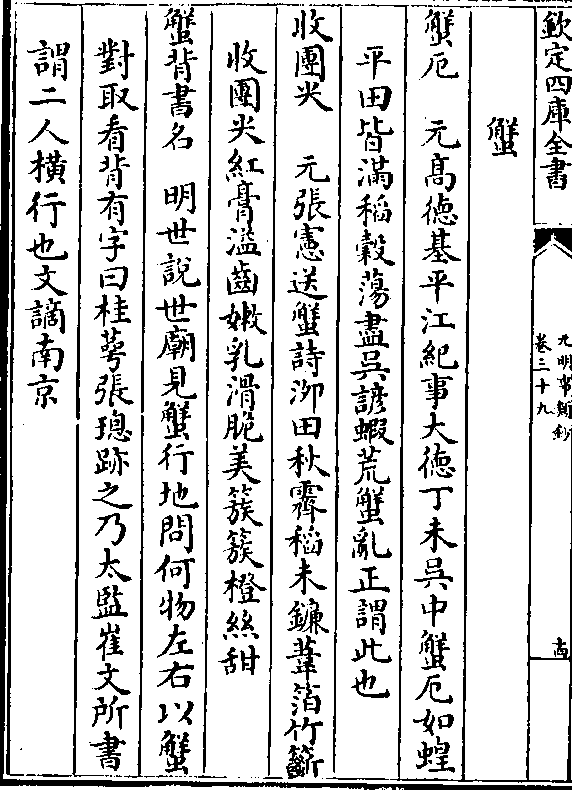 欽定四庫全書
元明事類鈔
卷三十九
蟹
蟹厄　元高德基平江紀事大徳丁未吳中蟹厄如蝗
平田皆滿稻穀蕩盡吳諺蝦荒蟹亂正謂此也
收團尖　元張憲送蟹詩泖田秋霽稻未鐮葦箔竹籪
收團尖紅膏溢齒嫩乳滑脆美簇簇橙絲甜
蟹背書名　明世說世廟見蟹行地問何物左右以蟹
對取看背有字曰桂萼張璁跡之乃太監崔文所書
謂二人橫行也文謫南京